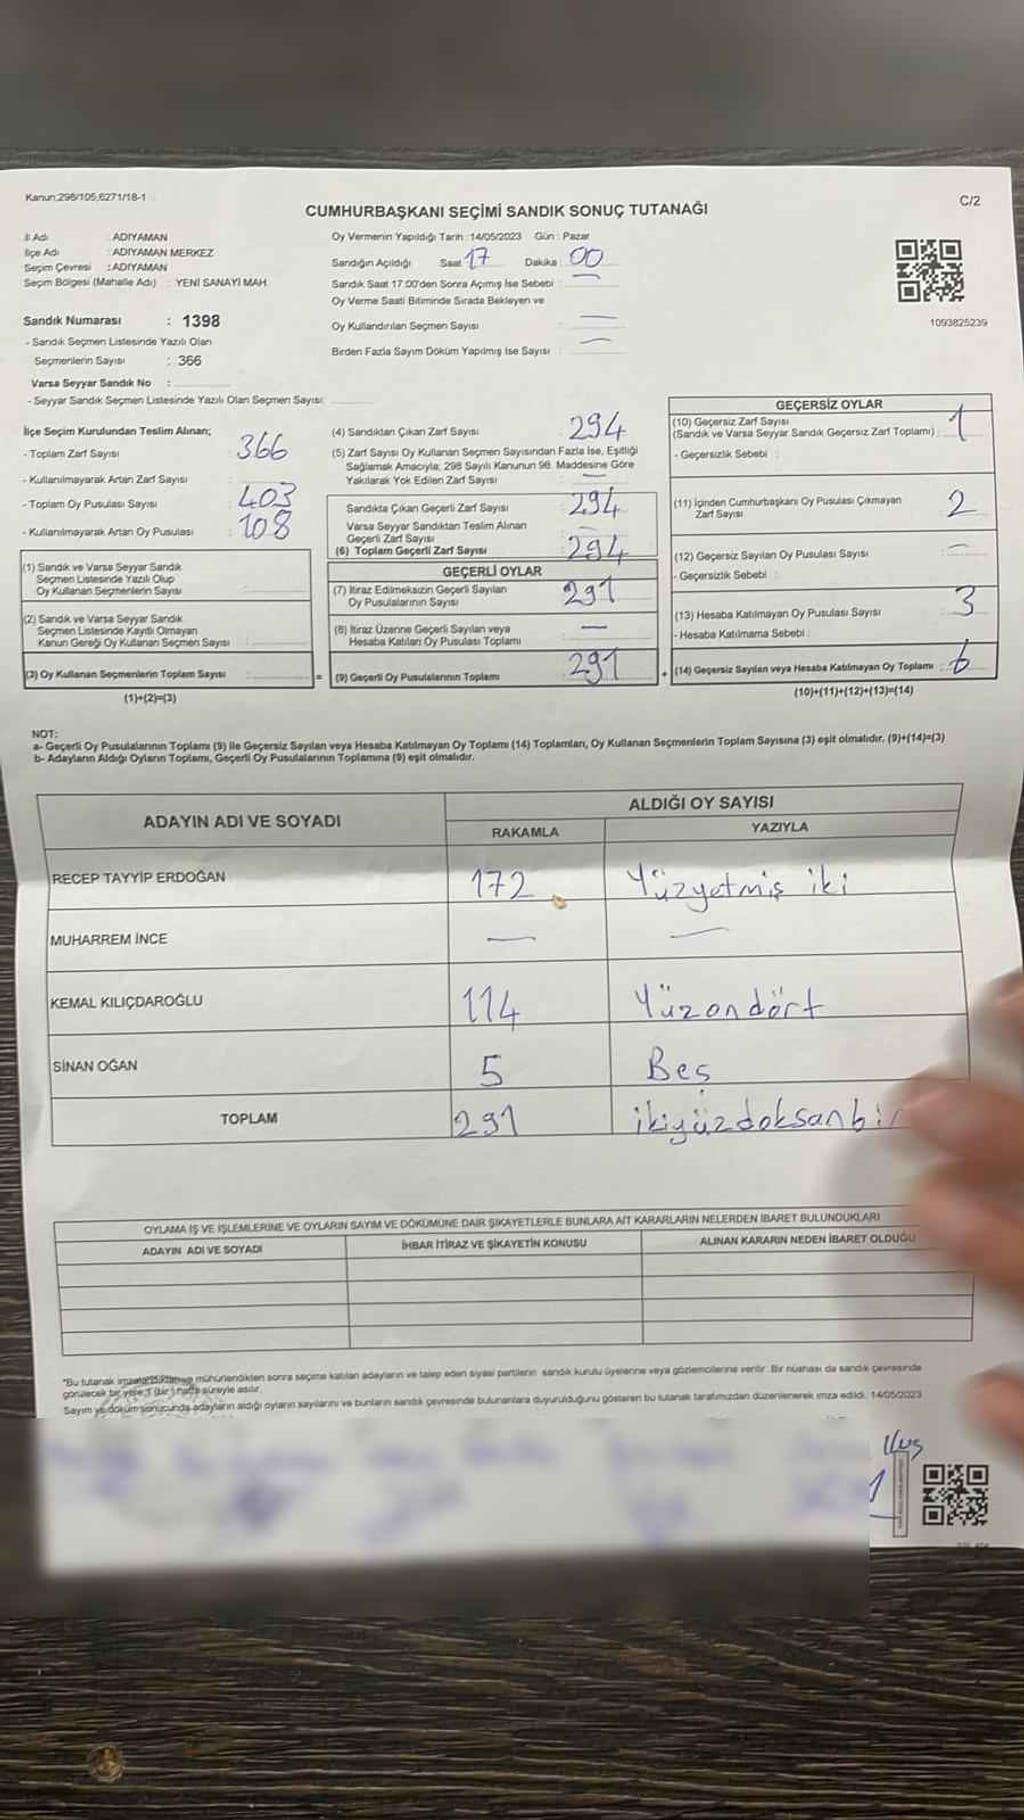 Kanun:298/105,6271/18-1
C/2
CUMHURBAŞKANI SEÇİMİ SANDIK SONUÇ TUTANAĞI
İl Adı : ADIYAMAN
İlçe Adı : ADIYAMAN MERKEZ
Seçim Çevresi : ADIYAMAN
Seçim Bölgesi (Mahalle Adı) : YENİ SANAYİ MAH.
Sandık Numarası : 1398
- Sandık Seçmen Listesinde Yazılı Olan
Seçmenlerin Sayısı : 366
Varsa Seyyar Sandık No :
- Seyyar Sandık Seçmen Listesinde Yazılı Olan Seçmen Sayısı:
Oy Vermenin Yapıldığı Tarih : 14/05/2023 Gün : Pazar
Sandığın Açıldığı Saat 17 Dakika : 00
Sandık Saat 17:00'den Sonra Açımış İse Sebebi : —
Oy Verme Saati Bitiminde Sırada Bekleyen ve
Oy Kullandırılan Seçmen Sayısı —
Birden Fazla Sayım Döküm Yapılmış İse Sayısı : —
1093825239
İlçe Seçim Kurulundan Teslim Alınan;
- Toplam Zarf Sayısı : 366
- Kullanılmayarak Artan Zarf Sayısı :
- Toplam Oy Pusulası Sayısı : 403
- Kullanılmayarak Artan Oy Pusulası : 108
(1) Sandık ve Varsa Seyyar Sandık
Seçmen Listesinde Yazılı Olup
Oy Kullanan Seçmenlerin Sayısı
(2) Sandık ve Varsa Seyyar Sandık
Seçmen Listesinde Kayıtlı Olmayan
Kanun Gereği Oy Kullanan Seçmen Sayısı
(3) Oy Kullanan Seçmenlerin Toplam Sayısı
(1)+(2)=(3)
(4) Sandıktan Çıkan Zarf Sayısı : 294
(5) Zarf Sayısı Oy Kullanan Seçmen Sayısından Fazla İse, Eşitliği
Sağlamak Amacıyla; 298 Sayılı Kanunun 98. Maddesine Göre
Yakılarak Yok Edilen Zarf Sayısı : —
Sandıkta Çıkan Geçerli Zarf Sayısı : 294
Varsa Seyyar Sandıktan Teslim Alınan
Geçerli Zarf Sayısı : —
(6) Toplam Geçerli Zarf Sayısı : 294
GEÇERLİ OYLAR
(7) İtiraz Edilmeksizin Geçerli Sayılan
Oy Pusulalarının Sayısı : 291
(8) İtiraz Üzerine Geçerli Sayılan veya
Hesaba Katılan Oy Pusulası Toplamı : —
= (9) Geçerli Oy Pusulalarının Toplamı 291
GEÇERSİZ OYLAR
(10) Geçersiz Zarf Sayısı
(Sandık ve Varsa Seyyar Sandık Geçersiz Zarf Toplamı) : 1
- Geçersizlik Sebebi :
(11) İçinden Cumhurbaşkanı Oy Pusulası Çıkmayan
Zarf Sayısı 2
(12) Geçersiz Sayılan Oy Pusulası Sayısı : —
- Geçersizlik Sebebi :
(13) Hesaba Katılmayan Oy Pusulası Sayısı : 3
- Hesaba Katılmama Sebebi :
+ (14) Geçersiz Sayılan veya Hesaba Katılmayan Oy Toplamı : 6
(10)+(11)+(12)+(13)=(14)
NOT:
a- Geçerli Oy Pusulalarının Toplamı (9) ile Geçersiz Sayılan veya Hesaba Katılmayan Oy Toplamı (14) Toplamları, Oy Kullanan Seçmenlerin Toplam Sayısına (3) eşit olmalıdır. (9)+(14)=(3)
b- Adayların Aldığı Oyların Toplamı, Geçerli Oy Pusulalarının Toplamına (9) eşit olmalıdır.
ADAYIN ADI VE SOYADI
ALDIĞI OY SAYISI
RAKAMLA YAZIYLA
RECEP TAYYİP ERDOĞAN 172 Yüzyetmiş iki
MUHARREM İNCE — —
KEMAL KILIÇDAROĞLU 114 Yüzondört
SİNAN OĞAN 5 Beş
TOPLAM 291 ikiyüzdoksanbir
OYLAMA İŞ VE İŞLEMLERİNE VE OYLARIN SAYIM VE DÖKÜMÜNE DAİR ŞİKAYETLERLE BUNLARA AİT KARARLARIN NELERDEN İBARET BULUNDUKLARI
ADAYIN ADI VE SOYADI İHBAR İTİRAZ VE ŞİKAYETİN KONUSU ALINAN KARARIN NEDEN İBARET OLDUĞU
*Bu tutanak mühürlendikten sonra seçime katılan adayların ve talep eden siyasi partilerin sandık kurulu üyelerine veya gözlemcilerine verilir. Bir nüshası da sandık çevresinde
görülecek bir yere 1 (bir) hafta süreyle asılır.
Sayım ve döküm sonucunda adayların aldığı oyların sayılarını ve bunların sandık çevresinde bulunanlara duyurulduğunu gösteren bu tutanak tarafımızdan düzenlenerek imza edildi. 14/05/2023